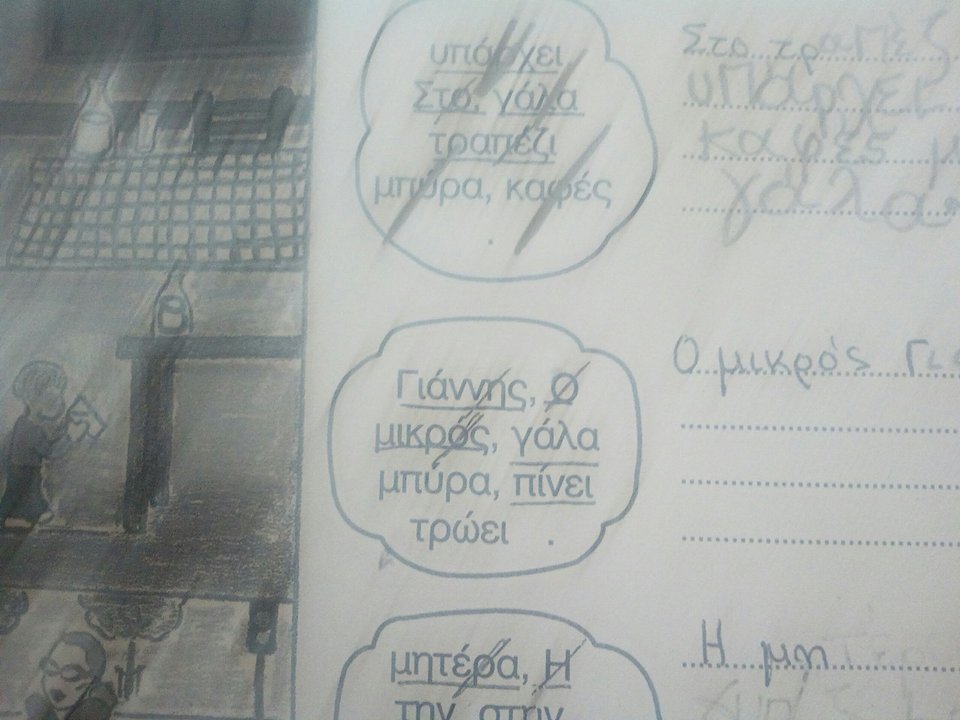 υπάρχει
Στο, γάλα
τραπέζι
μπύρα, καφές
.
Στο τραπέζ
υπάρχει
καφές μ
γάλα.
Γιάννης, Ο
μικρός, γάλα
μπύρα, πίνει
τρώει .
Ο μικρός Γι
μητέρα, Η
την στην
Η μη